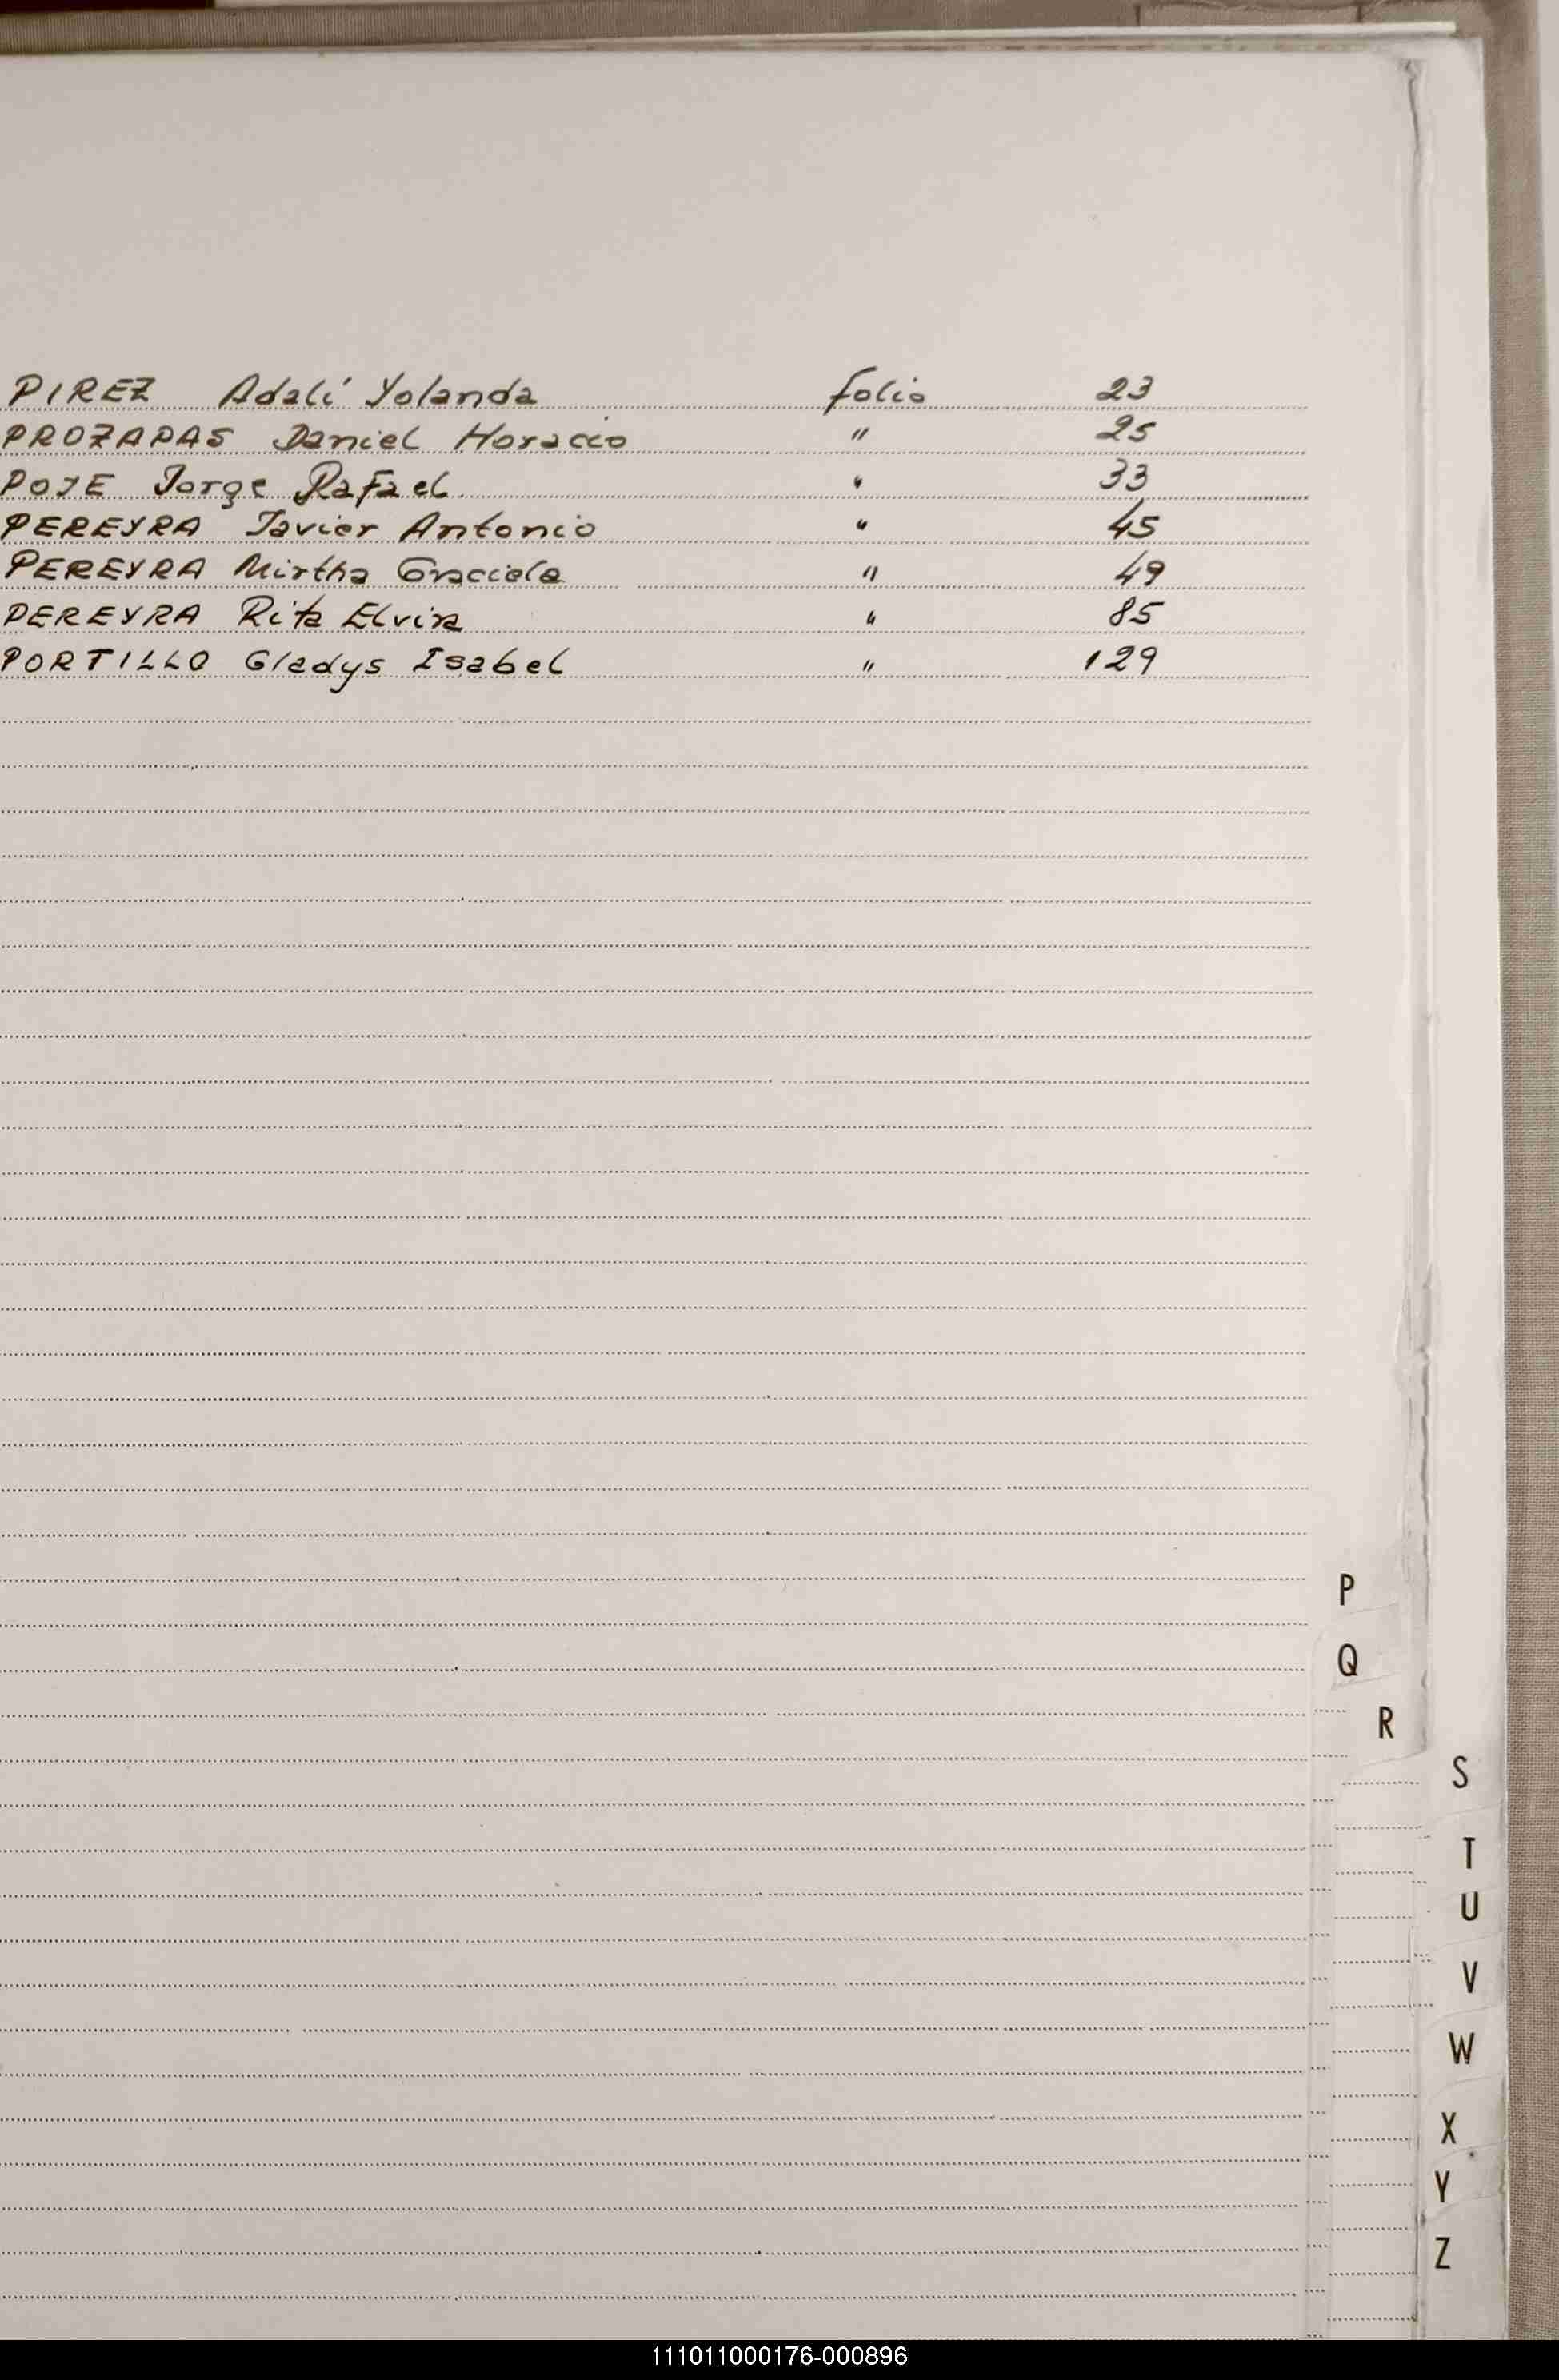 PIREZ Adalí Yolanda folio 23
PROZAPAS Daniel Horacio " 25
POJE Jorge Rafael " 33
PEREYRA Javier Antonio " 45
PEREYRA Mirtha Graciela " 49
PEREYRA Rita Elvira " 85
PORTILLO Gladys Isabel " 129
P
Q
R
S
T
U
V
W
X
Y
Z
111011000176-000896